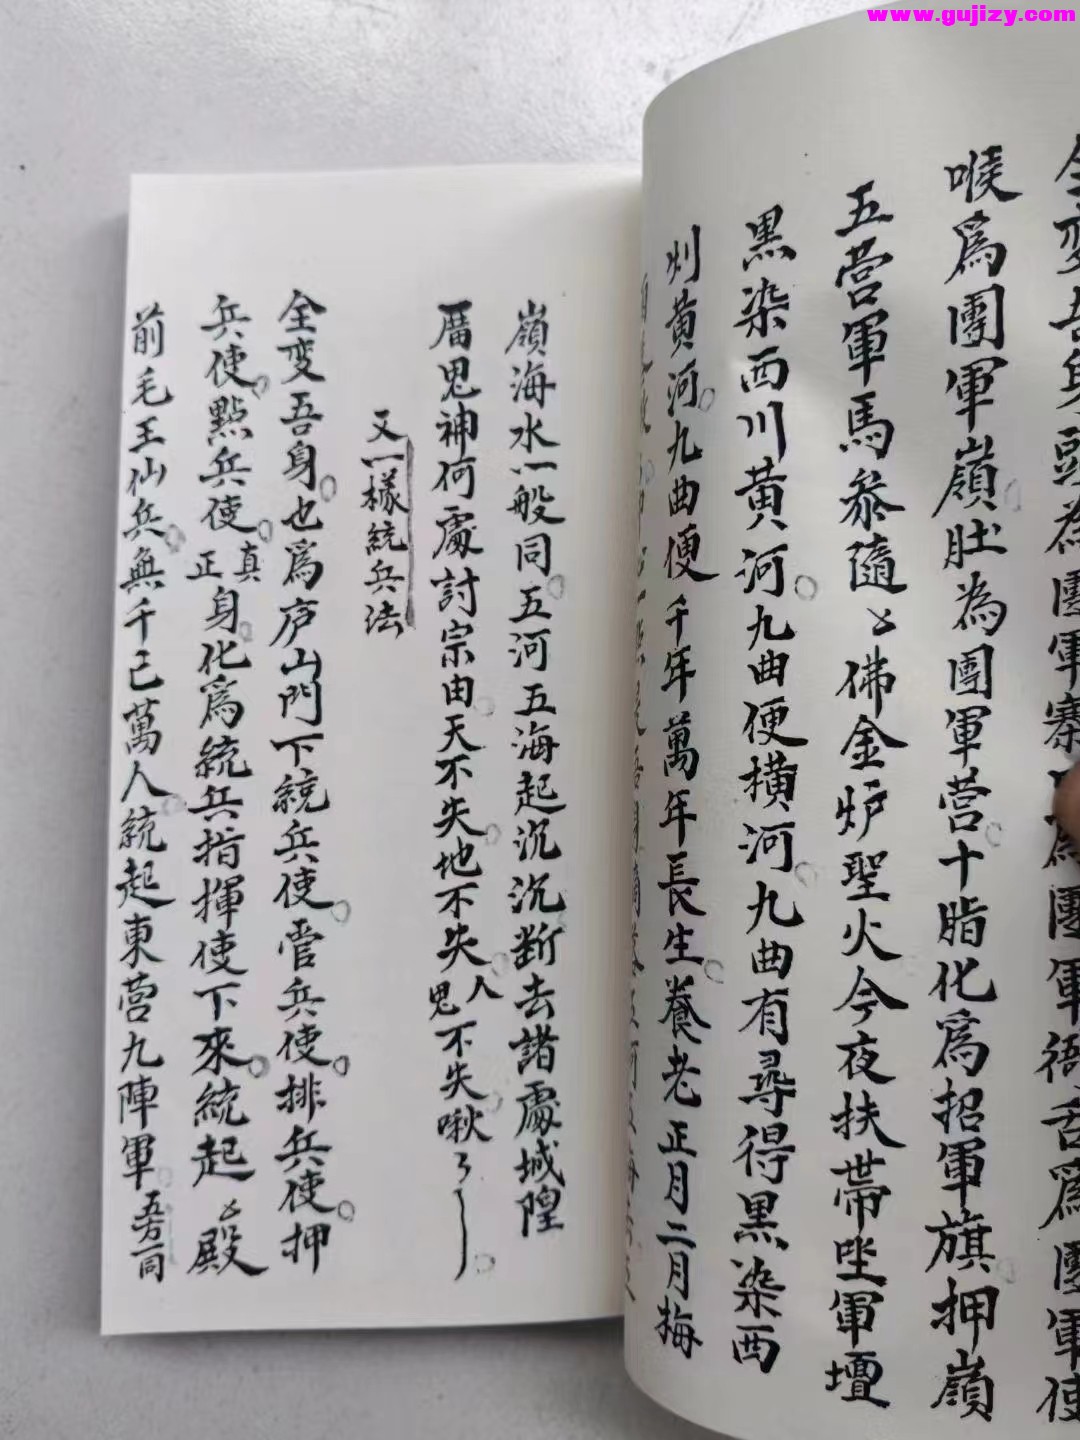 www.gujizy.com
全变吾身頭為團軍寨
為團軍衙舌為團軍使
喉為團軍嶺肚為團軍营十脂化為招軍旗押嶺
五营軍馬叅隨〻佛金炉聖火今夜扶帶坐軍壇
黑染西川黄河九曲便横河九曲有尋得黑染西
刘黄河九曲便千年萬年長生養老正月二月梅
嶺海水一般同五河五海起沉沉断去諸處城隍
厝鬼神何處討宗由天不失地不失人鬼不失啾
又一樣統兵法
全変吾身也為庐山門下統兵使管兵使排兵使押
兵使點兵使真正身化為統兵指揮使下來統起〻殿
前毛王仙兵無千已萬人統起東营九陣軍五方同